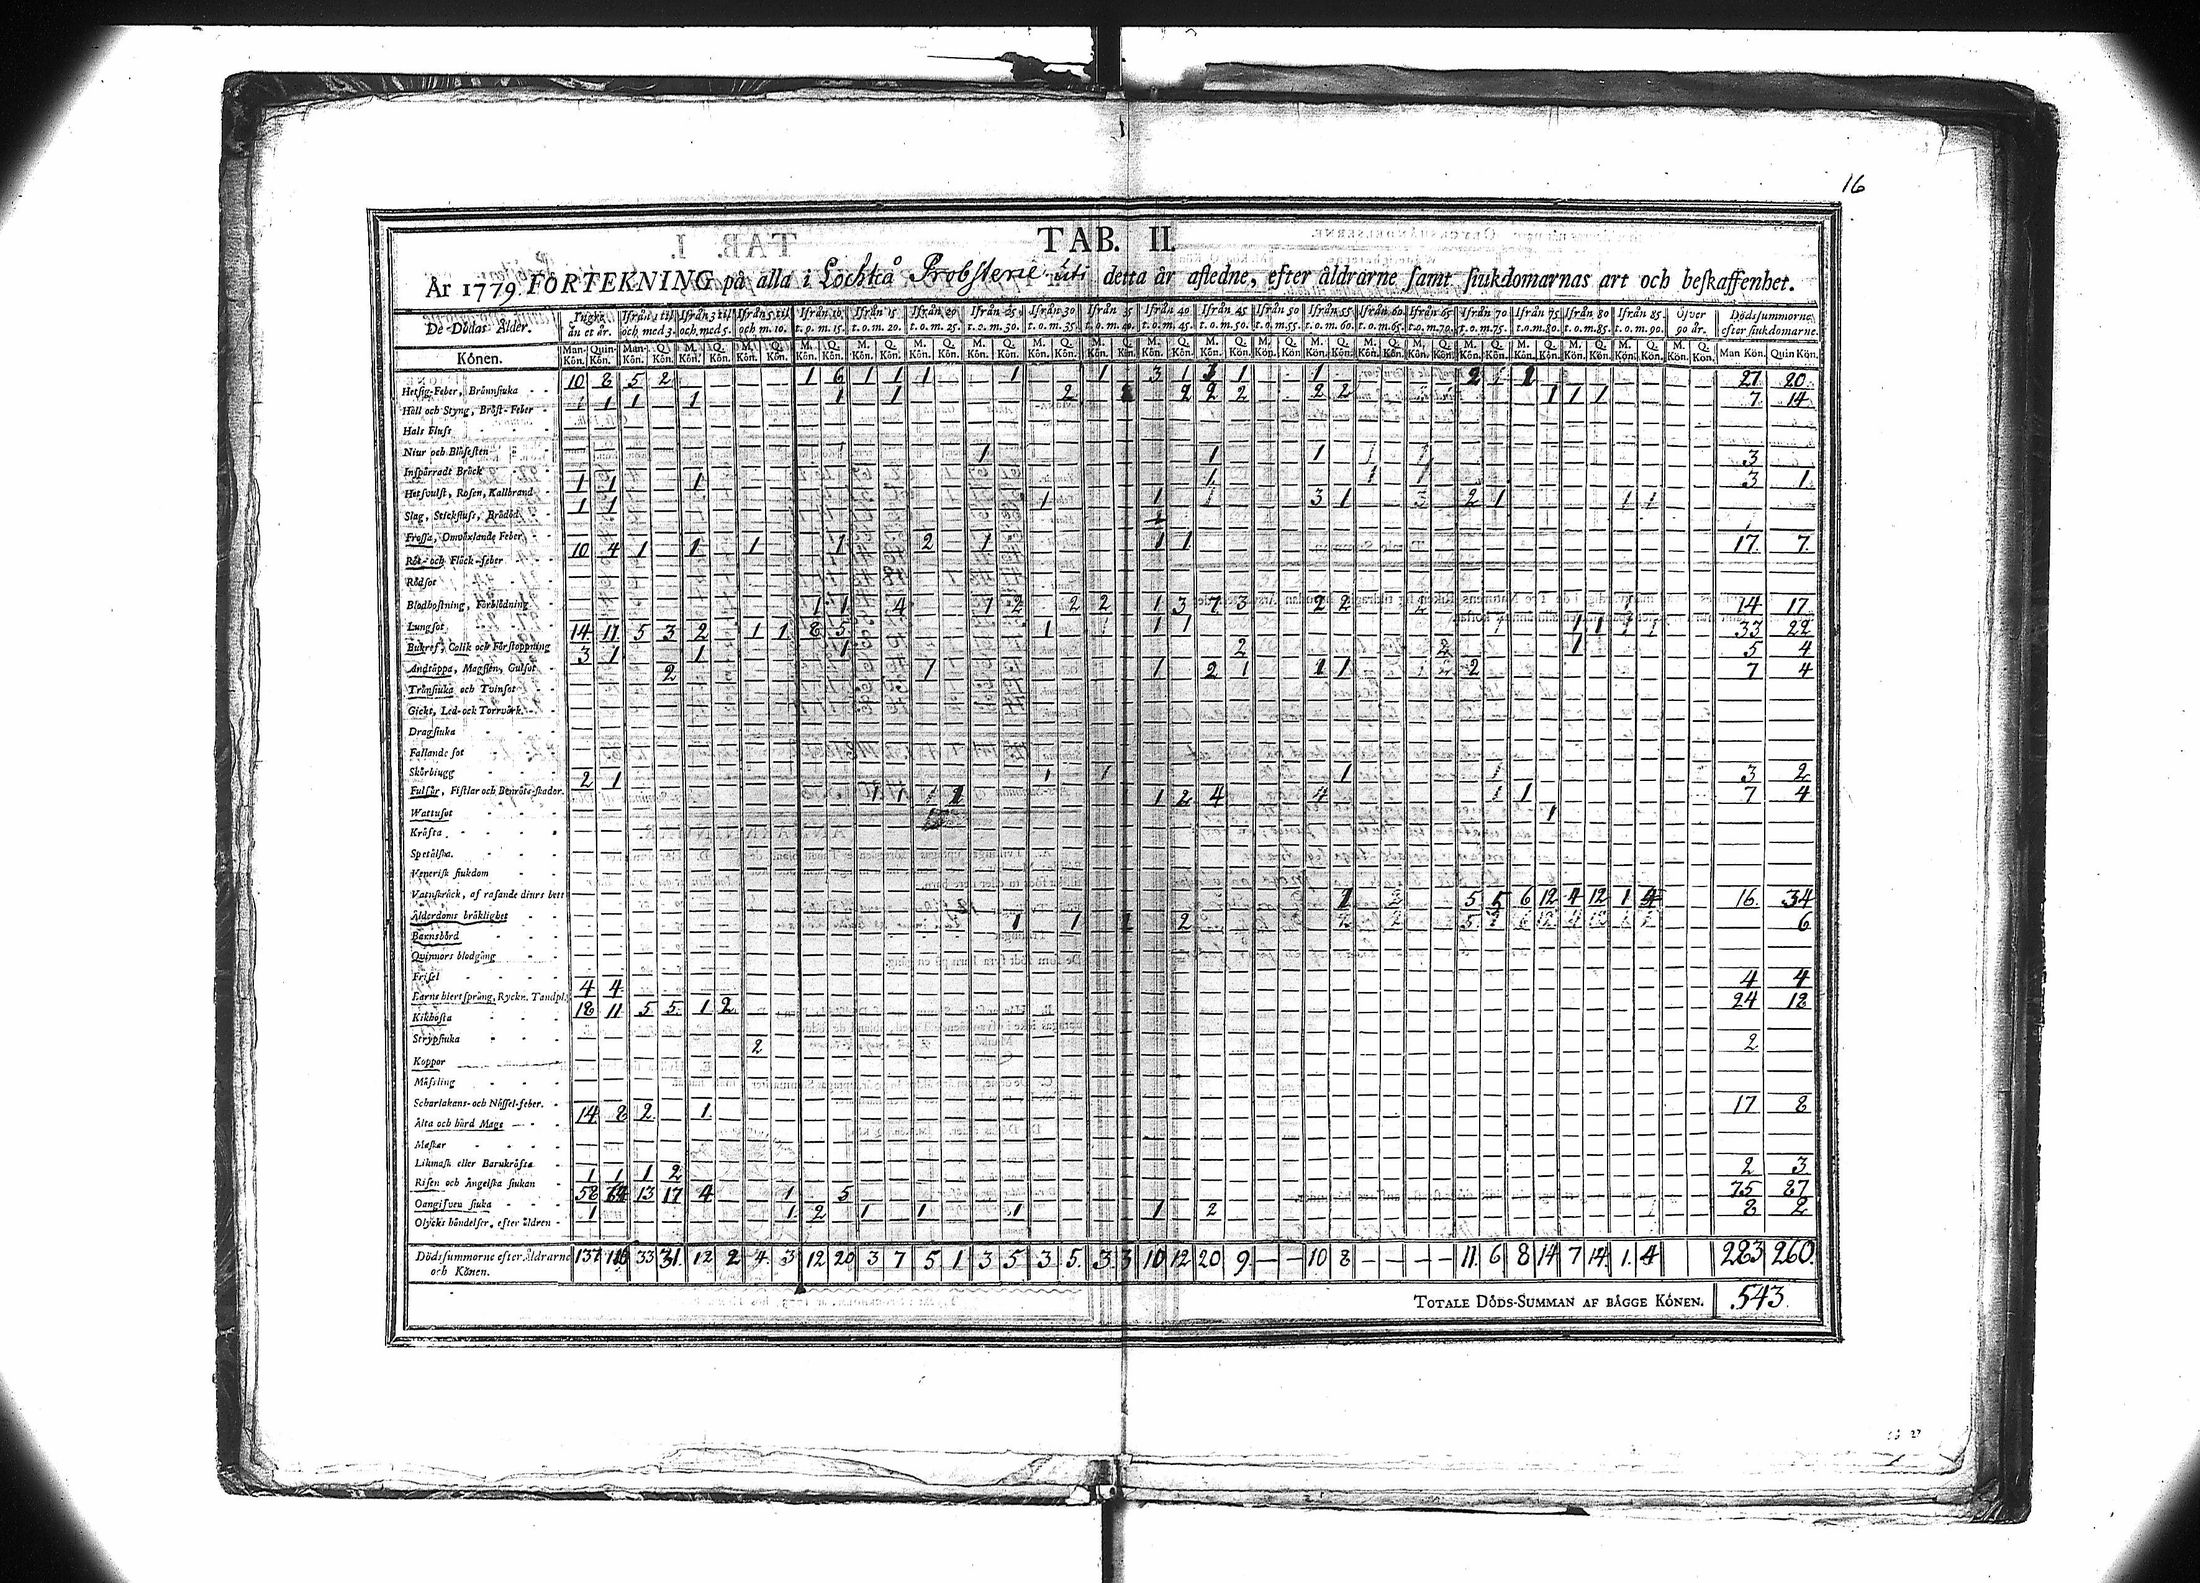 16
TAB. II.
År 1779. FÖRTEKNING på alla i Lochteå Probsterie uti detta år afledne, efter åldrarne samt siukdomarnas art och beskaffenhet.
De Dödas Ålder. Yngre än et år. Ifrån 1 til och med 3. Ifrån 3 til och med 5. Ifrån 5 til och m. 10. Ifrån 10 t. o. m. 15. Ifrån 15 t. o. m. 20. Ifrån 20 t. o. m. 25. Ifrån 25 t. o. m. 30. Ifrån 30 t. o. m. 35. Ifrån 35 t. o. m. 40. Ifrån 40 t. o. m. 45. Ifrån 45 t. o. m. 50. Ifrån 50 t. o. m. 55. Ifrån 55 t. o. m. 60. Ifrån 60 t. o. m. 65. Ifrån 65 t. o. m. 70. Ifrån 70 t. o. m. 75. Ifrån 75 t. o. m. 80. Ifrån 80 t. o. m. 85. Ifrån 85. t. o. m. 90. Öfver 90 år. Dödssummorne efter siukdomarne.
Könen. Man-Kön. Quin-Kön. Man-Kön. Q. Kön. M. Kön. Q. Kön. M. Kön. Q. Kön. M. Kön. Q. Kön. M. Kön. Q. Kön. M. Kön. Q. Kön. M. Kön. Q. Kön. M. Kön. Q. Kön. M. Kön. Q. Kön. M. Kön. Q. Kön. M. Kön. Q. Kön. M. Kön. Q. Kön. M. Kön. Q. Kön. M. Kön. Q. Kön. M. Kön. Q. Kön. M. Kön. Q. Kön. M. Kön. Q. Kön. M. Kön. Q. Kön. M. Kön. Q. Kön. M. Kön. Q. Kön. Man Kön. Quin Kön.
Hetsig-Feber, Brännsiuka 10 8 5 2 1 6 1 1 1 1 1 3 1 3 1 1 2 1 27 20
Håll och Styng, Bröst-Feber 1 1 1 1 1 1 2 2 2 2 2 2 1 1 1 7 14
Hals Fluss
Niur och Blåsesten
Inspärradt Bråck 1 1 1 3
Hetsvulst, Rosen, Kallbrand 1 1 1 1 3 1
Slag, Stickfluss, Brådöd 1 1 1 1 3 1 2 1 1 1
Frossa, Omväxlande Feber
Röt- och Fläck-feber 10 4 1 1 1 1 2 1 1 1 17 7
Rödsot
Blodhostning, Förblödning
Lungsot 1 1 4 1 2 2 2 1 3 7 3 2 2 14 17
Bukref, Colik och Förstoppning 14 11 5 3 2 1 1 8 5 1 1 1 1 1 33 22
Andtäppa, Magsien, Gulsot 3 1 1 1 2 2 1 5 4
Trånsiuka och Tvinsot 2 1 1 2 1 1 1 2 7 4
Gickt, Led- och Torrvärk
Dragsiuka
Fallande sot
Skörbiugg
Fulsår, Fistlar och Benröte-skador. 2 1 1 1 1 3 2
Wattusot 1 1 1 1 2 4 4 1 1 7 4
Kräfta
Spetälska.
Venerisk siukdom
Vatnskräck, af rasande diurs bett
Ålderdoms bräklighet 5 5 6 12 4 12 1 4 16 34
Barnsbörd 1 1 2 6
Quinnors blodgång
Frisel
Barns hiertsprång, Ryckn. Tandpl. 4 4 4 4
Kikhosta 18 11 5 5 1 2 24 18
Strypsiuka
Koppor 2 2
Mässling
Scharlakans- och Nässel-feber.
Älta och hård Mage 14 8 2 1 17 8
Maskar
Likmask eller Barnkräfta
Risen och Ångelska siukan 1 1 1 2 2 3
Oangifven siuka 58 13 17 4 1 5 75 87
Olycks händelser, efter åldren 1 1 2 1 1 1 1 2 8 2
Dödssummorne efter åldrarne och Könen. 137 116 33 31 12 2 4 3 12 20 3 7 5 1 3 5 3 5 3 3 10 12 20 9 10 8 11 6 8 14 7 14 1 4 283 260.
TOTALE DÖDS-SUMMAN AF BÄGGE KÖNEN. 543